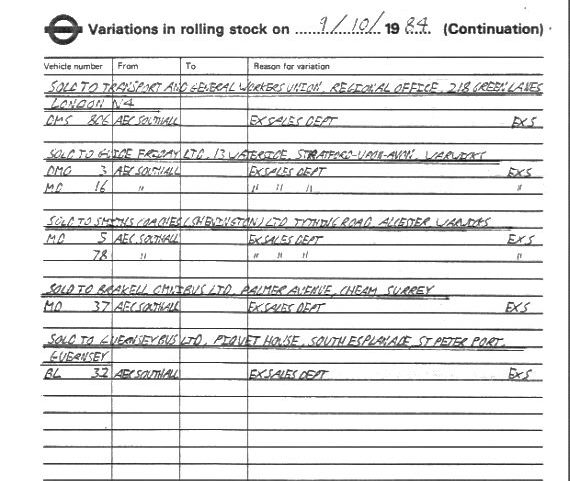 Variations in rolling stock on 9/10/1984. (Continuation)
Vehicle number From To Reason for variation
SOLD TO TRANSPORT AND GENERAL WORKERS UNION, REGIONAL OFFICE, 218 GREEN LANES
LONDON N4
DMS 806 AEC SOUTHALL EX SALES DEPT EXS
SOLD TO GUIDE FRIDAY LTD, 13 WATERSIDE, STRATFORD-UPON-AVON, WARWICKS
DMO 3 AEC SOUTHALL EX SALES DEPT EXS
MD 16 " " " " "
SOLD TO SMITHS COACHES (SHENINGTON) LTD TYTHING ROAD ALCESTER WARWICKS
MD 5 AEC SOUTHALL EX SALES DEPT EXS
78 " " " " "
SOLD TO BRAKELL OMNIBUS LTD, PALMER AVENUE, CHEAM, SURREY
MD 37 AEC SOUTHALL EX SALES DEPT EXS
SOLD TO GUERNSEYBUS LTD, PIQUET HOUSE, SOUTH ESPLANADE, ST PETER PORT,
GUERNSEY
BL 32 AEC SOUTHALL EX SALES DEPT EXS